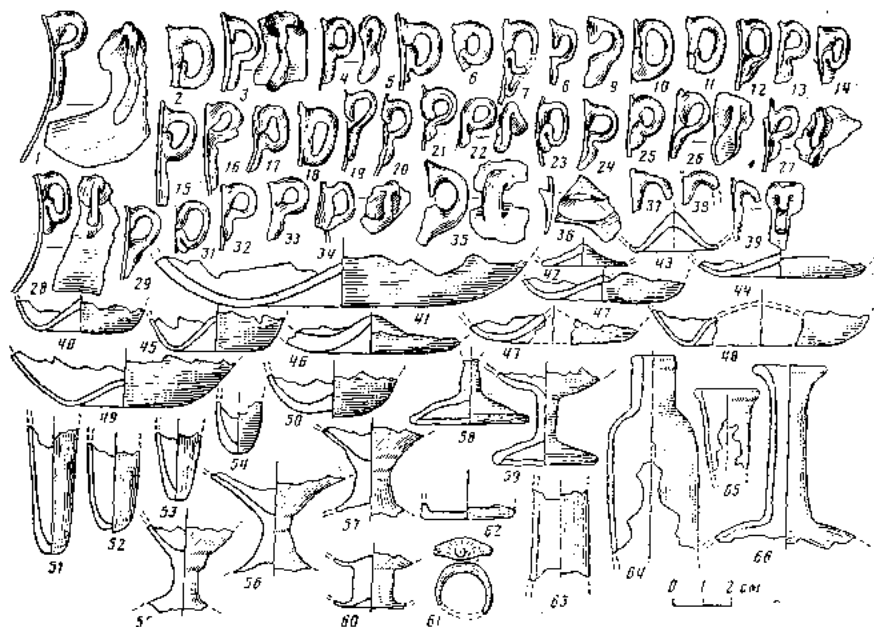 1 2 3 4 5 6 7 8 9 10 11 12 13 14
15 16 17 18 19 20 21 22 23 24 25 26 27
28 29 31 32 33 34 35 36 37 38 39
40 41 42 43 44
45 46 47 47 48
49 50 58
51 52 53 54 59
55 56 57 60 61 62 63 64 65 66
0 1 2 см